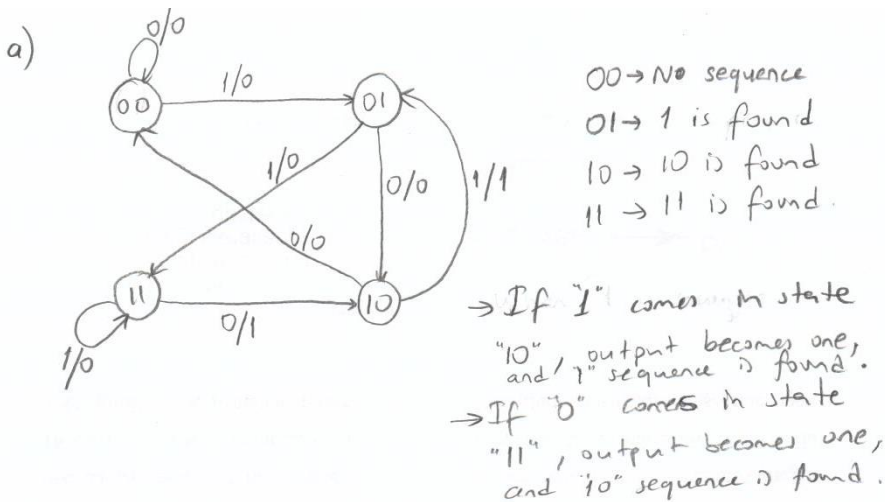 a)
0/0
00
1/0
01
1/0
0/0
1/1
0/0
11
0/1
10
1/0
00 → No sequence
01 → 1 is found
10 → 10 is found
11 → 11 is found.
→ If "1" comes in state
"10", output becomes one,
and "1" sequence is found.
→ If "0" comes in state
"11", output becomes one,
and "10" sequence is found.